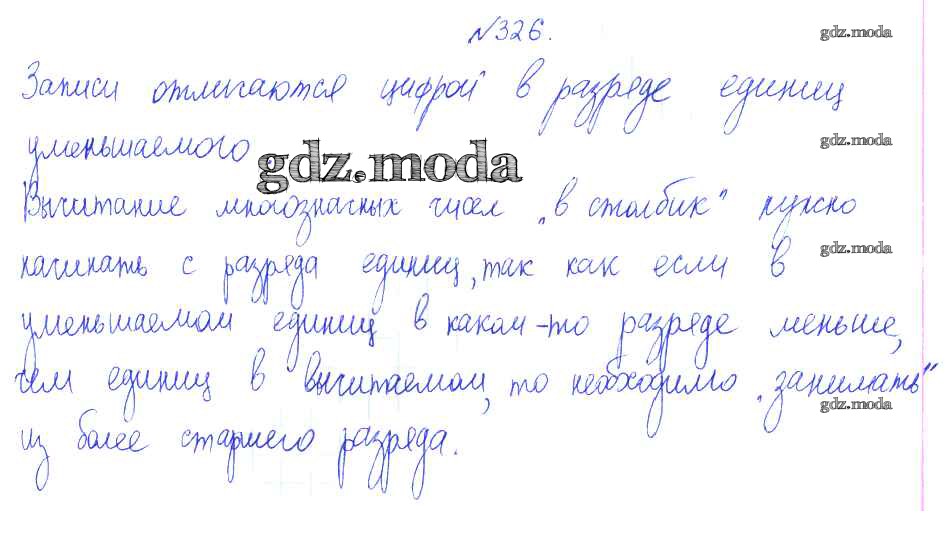 №326.
gdz.moda
Записи отличаются цифрой в разряде единиц
уменьшаемого.
gdz.moda
gdz.moda
Вычитание многозначных чисел „в столбик" нужно
gdz.moda
начинать с разряда единиц, так как если в
уменьшаемом единиц в каком-то разряде меньше,
чем единиц в вычитаемом, то необходимо „занимать"
gdz.moda
из более старшего разряда.